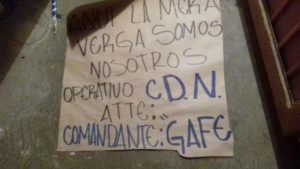 AQUI LA MERA
VERGA SOMOS
NOSOTROS
OPERATIVO C.D.N.
ATTE:
COMANDANTE: GAFE